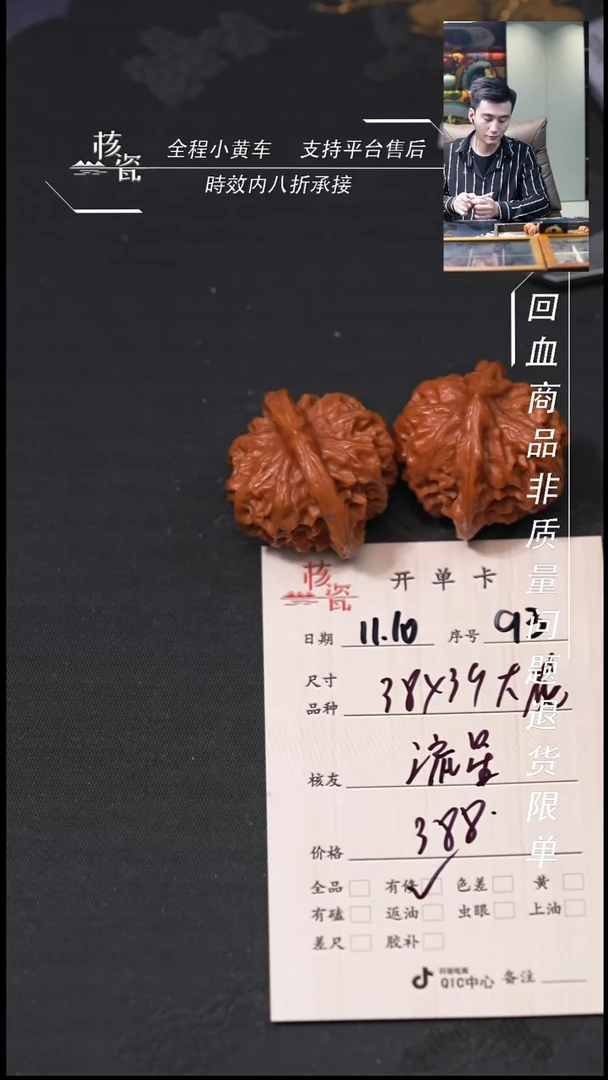 核瓷
全程小黄车 支持平台售后
時效内八折承接
回血商品非质量问题退货限单
核瓷
开单卡
日期 11.10 序号
尺寸
品种 38x39大
核友 流星
价格 388.
全品 有修 色差 黄
有磕 返油 虫眼 上油
差尺 胶补
QIC中心 备注